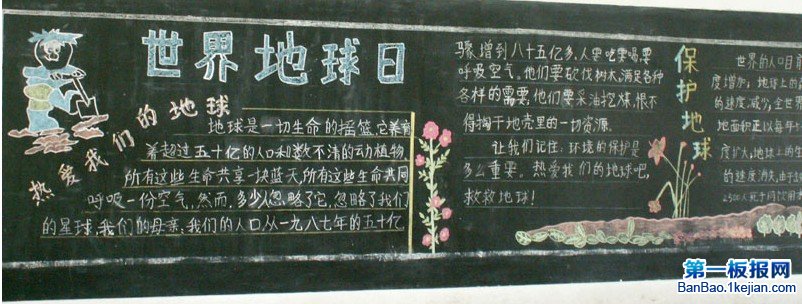 世界地球日
热爱我们的地球
地球是一切生命的摇篮,它养育
着超过五十亿的人口和数不清的动植物,
所有这些生命共享一块蓝天,所有这些生命共同
呼吸一份空气,然而,多少人忽略了它,忽略了我们
的星球,我们的母亲,我们的人口从一九八七年的五十亿
骤增到八十五亿多,人要吃要喝,要
呼吸空气。他们要砍伐树木,满足各种
各样的需要,他们要采油挖煤,恨不
得掏干地壳里的一切资源。
让我们记住,环境的保护是
多么重要。热爱我们的地球吧,
救救地球!
保护地球
世界的人口目前
度增加;地球上的
的速度减少,全世界
地面积正以每年
度扩大,地球上的生
的速度消失,由于
2500人死于
第一板报网
BanBao.1kejian.com